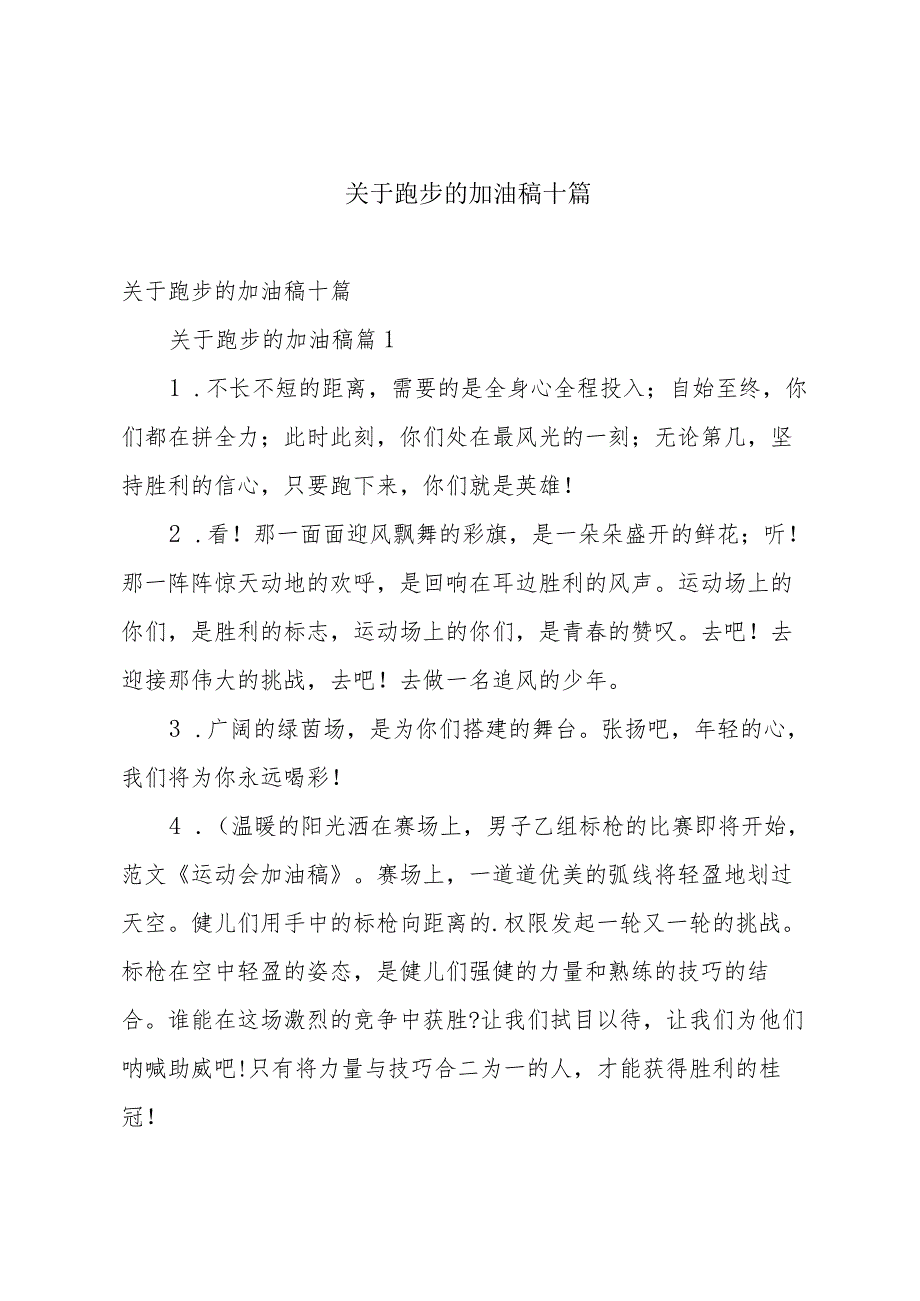 关于跑步的加油稿十篇
关于跑步的加油稿十篇
关于跑步的加油稿篇1
1 .不长不短的距离，需要的是全身心全程投入；自始至终，你
们都在拼全力；此时此刻，你们处在最风光的一刻；无论第几，坚
持胜利的信心，只要跑下来，你们就是英雄！
2 .看！那一面面迎风飘舞的彩旗，是一朵朵盛开的鲜花；听！
那一阵阵惊天动地的欢呼，是回响在耳边胜利的风声。运动场上的
你们，是胜利的标志，运动场上的你们，是青春的赞叹。去吧！去
迎接那伟大的挑战，去吧！去做一名追风的少年。
3 .广阔的绿茵场，是为你们搭建的舞台。张扬吧，年轻的心，
我们将为你永远喝彩！
4 .（温暖的阳光洒在赛场上，男子乙组标枪的比赛即将开始，
范文《运动会加油稿》。赛场上，一道道优美的弧线将轻盈地划过
天空。健儿们用手中的标枪向距离的.权限发起一轮又一轮的挑战。
标枪在空中轻盈的姿态，是健儿们强健的力量和熟练的技巧的结
合。谁能在这场激烈的竞争中获胜?让我们拭目以待，让我们为他们
呐喊助威吧!只有将力量与技巧合二为一的人，才能获得胜利的桂
冠！